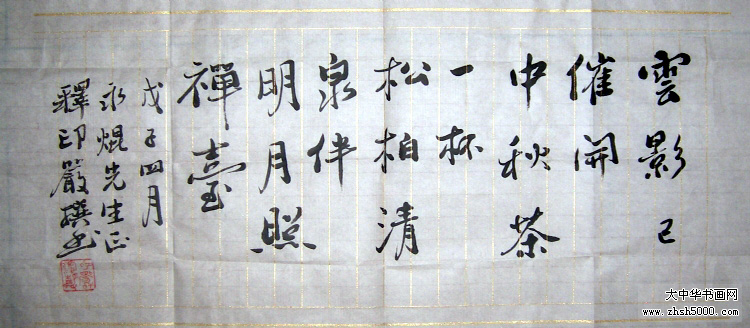 雲影已
催開
中秋茶
一杯
松柏清
泉伴
明月照
禪臺
戊子四月
永焜先生正
釋印嚴撰書
大中华书画网
www.zhsh5000.com